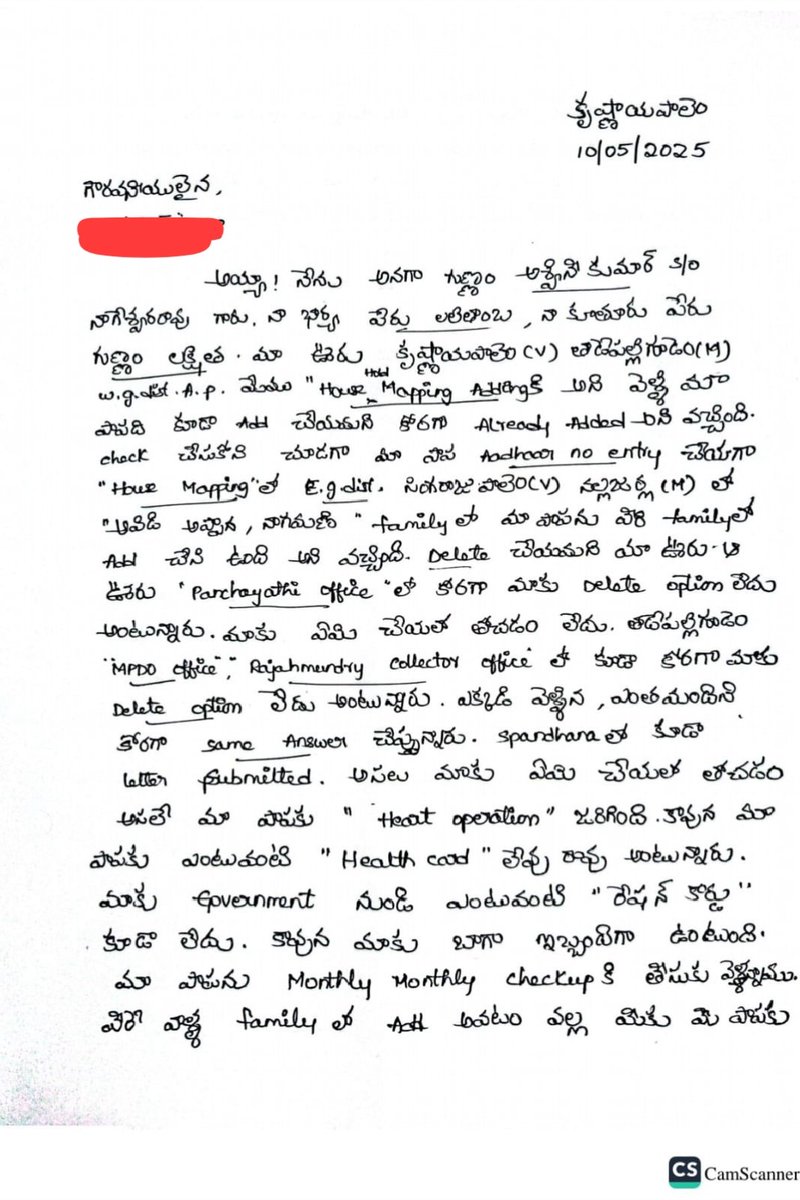 కృష్ణాయపాలెం
10/05/2025
గౌరవనీయులైన,
అయ్యా! నేను అనగా గుణ్ణం అశ్వినీ కుమార్ S/o
నాగేశ్వరరావు గారు. నా భార్య పేరు లలితాంబ, నా కూతురు పేరు
గుణ్ణం లక్ష్మిత. మా ఊరు కృష్ణాయపాలెం(V) తాడేపల్లిగూడెం(M)
W.g.dist. A.p. మేము "House Hold Mapping Addingకి అని వెళ్ళి మా
పాపది కూడా Add చేయమని కోరగా Already Added అని వచ్చింది.
check చేసుకొని చూడగా మా పాప Aadhaar no entry చేయగా
"House Mapping"లో E.g.dist. సింగరాజుపాలెం(V) నల్లజర్ల (M) లో
"ఆవిడి అప్పన్న, నాగమణి" family లో మా పాపను వీరి familyలో
Add చేసి ఉంది అని వచ్చింది. Delete చేయమని మా ఊరు
ఊరు "Panchayathi office"లో కోరగా మాకు Delete option లేదు
అంటున్నారు. మాకు ఏమి చేయలో తోచడం లేదు. తాడేపల్లిగూడెం
"MPDO office", Rajahmundry collector office లో కూడా కోరగా మాకు
Delete option లేదు అంటున్నారు. ఎక్కడికి వెళ్ళిన, ఎంతమందిని
కోరగా same Answer చెప్తున్నారు. Spandhana లో కూడా
letter Submitted. అసలు మాకు ఏమి చేయలో తోచడం
అసలే మా పాపకు "Heart operation" జరిగింది. కావున మా
పాపకు ఎంటువంటి "Health card" లేవు రావు అంటున్నారు.
మాకు Government నుండి ఎంటువంటి "రేషన్ కార్డు"
కూడా లేదు. కావున మాకు బాగా ఇబ్బందిగా ఉంటుంది.
మా పాపను Monthly Monthly checkup కి తీసుకు వెళ్తున్నాము.
వేరే వాళ్ళ family లో Add అవటం వల్ల మీకు మీ పాపకు
CS CamScanner